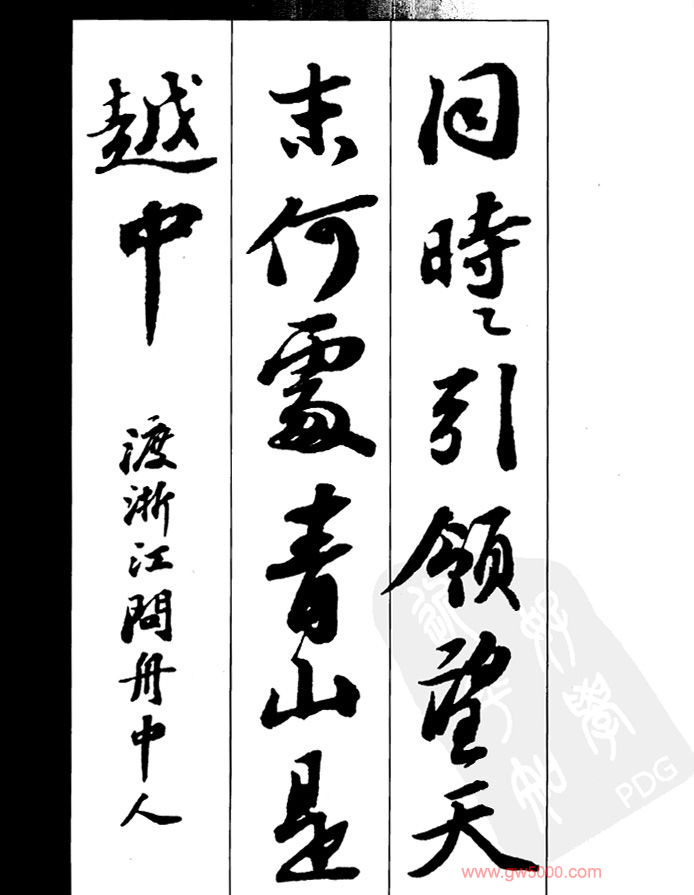 同時〻引領望天
末何處青山是
越中
渡浙江問舟中人
PDG
www.gw5000.com